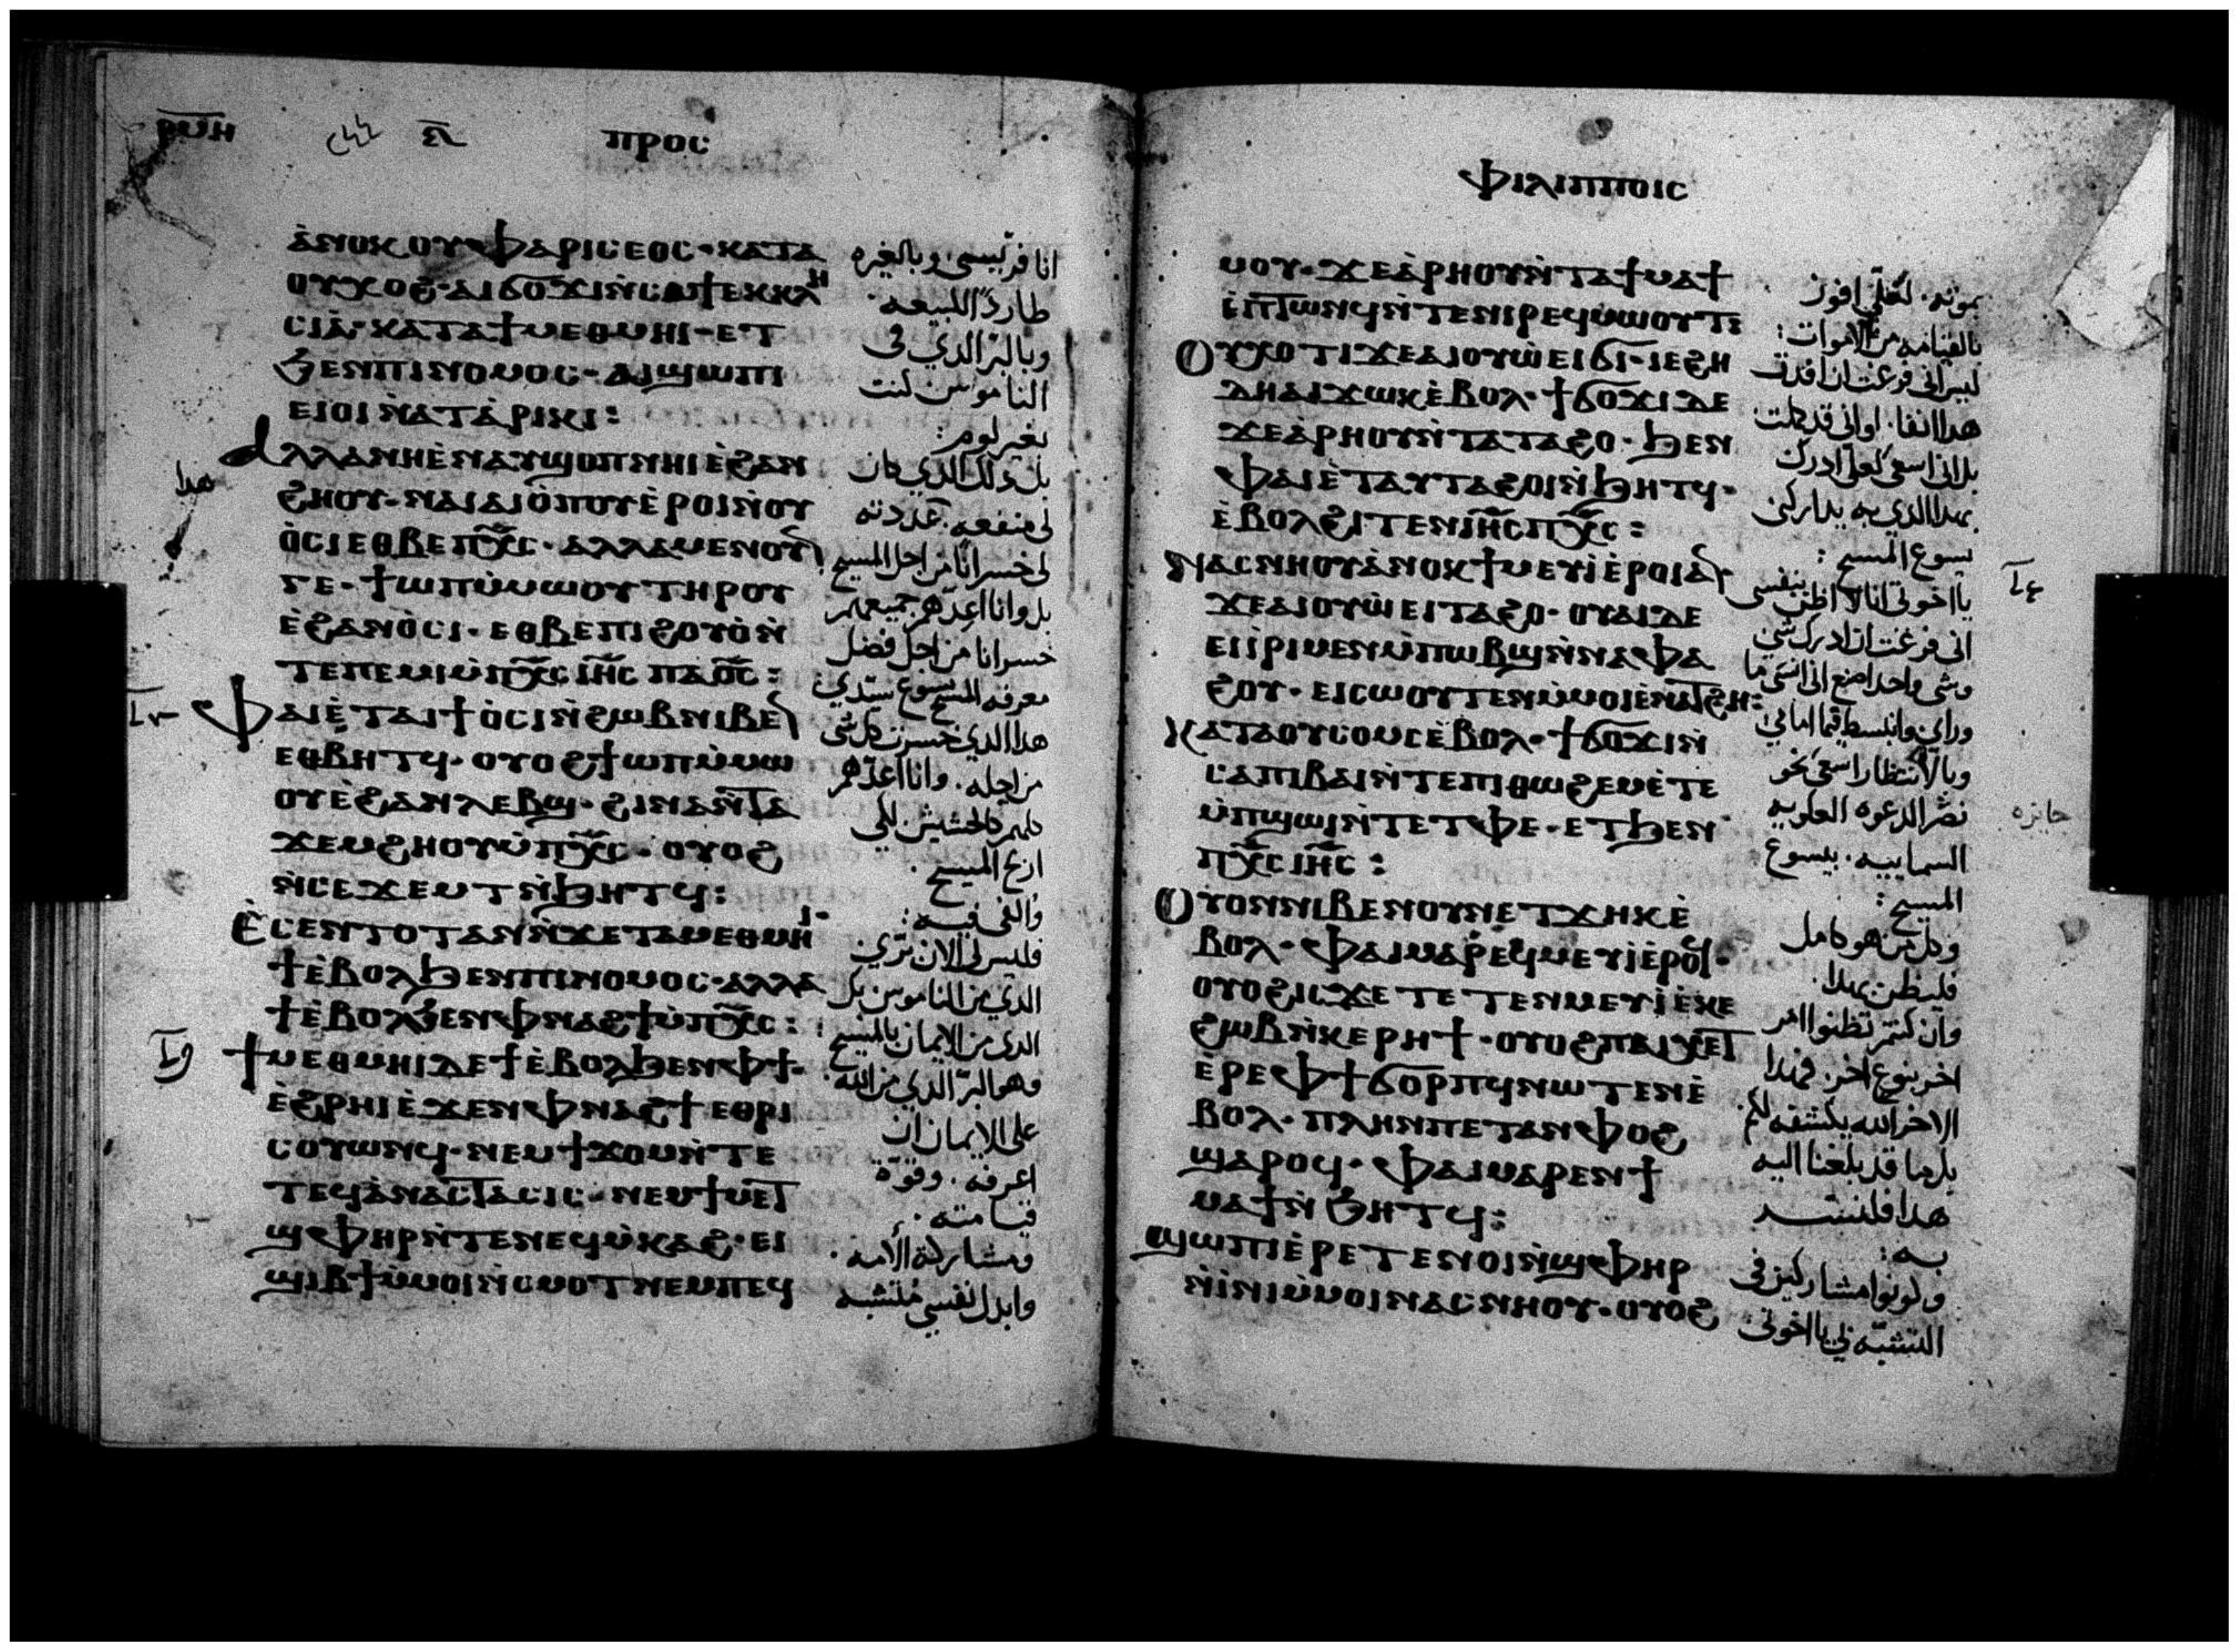 ⲣⲙⲏ
ⲡⲣⲟⲥ
ⲁⲛⲟⲕ ⲟⲩⲫⲁⲣⲓⲥⲉⲟⲥ · ⲕⲁⲧⲁ
ⲟⲩⲭⲟϩ · ⲁⲓϭⲟϫⲓ ⲛⲥⲁ ϯⲉⲕⲕⲗⲏ
ⲥⲓⲁ · ⲕⲁⲧⲁ ϯⲙⲉⲑⲙⲏⲓ · ⲉⲧ
ϧⲉⲛ ⲡⲓⲛⲟⲙⲟⲥ · ⲁⲓϣⲱⲡⲓ
ⲉⲓⲟⲓ ⲛⲁⲧⲁⲣⲓⲕⲓ :
ⲁⲗⲗⲁ ⲛⲏ ⲉⲛⲁⲩϣⲟⲡ ⲛⲏⲓ ⲉϩⲁⲛ
ϩⲏⲟⲩ · ⲛⲁⲓ ⲁⲓⲟⲡⲟⲩ ⲉⲣⲟⲓ ⲛⲟⲩ
ⲟⲥⲓ ⲉⲑⲃⲉ ⲡⲭⲥ · ⲁⲗⲗⲁ ⲙⲉⲛⲟⲩⲛ
ⲅⲉ · ϯⲱⲡ ⲙⲙⲱⲟⲩ ⲧⲏⲣⲟⲩ
ⲉϩⲁⲛⲟⲥⲓ · ⲉⲑⲃⲉ ⲡⲓϩⲟⲩⲟ ⲛ
ⲧⲉ ⲡⲉⲙⲓ ⲙⲡⲭⲥ ⲓⲏⲥ ⲡⲁⲟⲥ :
ⲫⲁⲓ ⲉⲧⲁⲓϯⲟⲥⲓ ⲛϩⲱⲃ ⲛⲓⲃⲉⲛ
ⲉⲑⲃⲏⲧϥ · ⲟⲩⲟϩ ϯⲱⲡ ⲙⲙⲱ
ⲟⲩ ⲉϩⲁⲛⲗⲉⲃϣ · ϩⲓⲛⲁ ⲛⲧⲁ
ϫⲉⲙϩⲏⲟⲩ ⲙⲡⲭⲥ · ⲟⲩⲟϩ
ⲛⲥⲉϫⲉⲙⲧ ⲛϧⲏⲧϥ :
ⲉⲥⲉⲛⲧⲟⲧ ⲁⲛ ⲛϫⲉ ⲧⲁⲙⲉⲑⲙⲏⲓ
ϯ ⲉⲃⲟⲗ ϧⲉⲛ ⲡⲓⲛⲟⲙⲟⲥ · ⲁⲗⲗⲁ
ϯ ⲉⲃⲟⲗ ϧⲉⲛ ⲫⲛⲁϩϯ ⲙⲡⲭⲥ :
ϯⲙⲉⲑⲙⲏⲓ ⲇⲉ ϯ ⲉⲃⲟⲗ ϧⲉⲛ ⲫϯ ·
ⲉϩⲣⲏⲓ ⲉϫⲉⲛ ⲫⲛⲁϩϯ ⲉⲑⲣⲓ
ⲥⲟⲩⲱⲛϥ · ⲛⲉⲙ ϯϫⲟⲙ ⲛⲧⲉ
ⲧⲉϥⲁⲛⲁⲥⲧⲁⲥⲓⲥ · ⲛⲉⲙ ϯⲙⲉⲧ
ϣⲫⲏⲣ ⲛⲧⲉ ⲛⲉϥⲙⲕⲁϩ · ⲉⲓ
ϣⲓⲃϯ ⲙⲙⲟⲓ ⲛⲥⲙⲟⲧ ⲛⲉⲙ ⲡⲉϥ
انا فريسى وبالغيره
طارداً للبيعه.
وبالبر الذي فى
الناموس كنت
بغير لوم:
بل ذلك الذي كان
لى منفعه. عددته
لى خسراناً من اجل المسيح
بل وانا اعدهم جميعهم
خسرانا من اجل فضل
معرفه المسيح يسوع سيدي:
هذا الذي خسرت كل شى
من اجله. وانا اعدهم
كلهم كالحشيش لكى
اربح المسيح.
والفى فيه:
فليس لى الان برّي
الذي من الناموس بل
الذى من الايمان بالمسيح:
وهو البرّ الذي من الله.
على الايمان ان
اعرفه. وقوّة
قيامته.
ومشاركة آلامه.
وابدل نفسى متشبه
هذا
ⲫⲓⲗⲓⲡⲡⲟⲓⲥ
ⲙⲟⲩ · ϫⲉ ⲁⲣⲏⲟⲩ ⲛⲧⲁϯⲙⲁϯ
ⲉⲡⲧⲱⲛϥ ⲛⲧⲉ ⲛⲓⲣⲉϥⲙⲱⲟⲩⲧ :
ⲟⲩⲭ ⲟⲧⲓ ϫⲉ ⲁⲓⲟⲩⲱ ⲉⲓϭⲓ · ⲓⲉ ϩⲏ
ⲇⲏ ⲁⲓϫⲱⲕ ⲉⲃⲟⲗ · ϯϭⲟϫⲓ ⲇⲉ
ϫⲉ ⲁⲣⲏⲟⲩ ⲛⲧⲁⲧⲁϩⲟ · ϧⲉⲛ
ⲫⲁⲓ ⲉⲧⲁⲩⲧⲁϩⲟⲓ ⲛϧⲏⲧϥ ·
ⲉⲃⲟⲗ ϩⲓⲧⲉⲛ ⲓⲏⲥ ⲡⲭⲥ :
ⲛⲁⲥⲛⲏⲟⲩ ⲁⲛⲟⲕ ϯⲙⲉⲩⲓ ⲉⲣⲟⲓ ⲁⲛ
ϫⲉ ⲁⲓⲟⲩⲱ ⲉⲓⲧⲁϩⲟ · ⲟⲩⲁⲓ ⲇⲉ
ⲉⲓⲓⲣⲓ ⲙⲉⲛ ⲙⲡⲱⲃϣ ⲛⲛⲁⲫⲁ
ϩⲟⲩ · ⲉⲓⲥⲱⲟⲩⲧⲉⲛ ⲙⲙⲟⲓ ⲉⲛⲁⲧϩⲏ :
ⲕⲁⲧⲁ ⲟⲩⲥⲟⲙⲥ ⲉⲃⲟⲗ · ϯϭⲟϫⲓ ⲛ
ⲥⲁ ⲡⲓⲃⲁⲓ ⲛⲧⲉ ⲡⲓⲑⲱϩⲉⲙ ⲉⲧⲉ
ⲙⲡϣⲱⲓ ⲛⲧⲉ ⲧⲫⲉ · ⲉⲧϧⲉⲛ
ⲡⲭⲥ ⲓⲏⲥ :
ⲟⲩⲟⲛ ⲛⲓⲃⲉⲛ ⲟⲩⲛ ⲉⲧϫⲏⲕ ⲉ
ⲃⲟⲗ · ⲫⲁⲓ ⲙⲁⲣⲉϥⲙⲉⲩⲓ ⲉⲣⲟϥ ·
ⲟⲩⲟϩ ⲓⲥϫⲉ ⲧⲉⲧⲉⲛⲙⲉⲩⲓ ⲉⲕⲉ
ϩⲱⲃ ⲛⲕⲉⲣⲏϯ · ⲟⲩⲟϩ ⲡⲁⲓⲭⲉⲧ
ⲉⲣⲉ ⲫϯ ϭⲟⲣⲡϥ ⲛⲱⲧⲉⲛ ⲉ
ⲃⲟⲗ · ⲡⲗⲏⲛ ⲡⲉⲧⲁⲛⲫⲟϩ
ϣⲁⲣⲟϥ · ⲫⲁⲓ ⲙⲁⲣⲉⲛϯ
ⲙⲁϯ ⲛϧⲏⲧϥ :
ϣⲱⲡⲓ ⲉⲣⲉⲧⲉⲛⲟⲓ ⲛϣⲫⲏⲣ
ⲛⲓⲛⲓ ⲙⲙⲟⲓ ⲛⲁⲥⲛⲏⲟⲩ · ⲟⲩⲟϩ
بموته. لعلّى افوز
بالقيامه من الاموات:
ليس انى فرغت ان اخذت
هذا انفا. او انى قد كملت
بل انى اسعى لعلى ادرك
بهذا الذي به يداركنى
يسوع المسيح:
يا اخوتى انا لا اظن بنفسى
انى فرغت ان ادرك شى
وشى واحد اصنع انى انسى ما
وراى وانبسط فيما امامى:
وبالانتظار اسعى نحو
نصر الدعوه العلويه
السماييه. بيسوع
المسيح:
وكل من هو كامل
فليظن بهذا.
وان كنتم تظنوا امر
اخر بنوع اخر. فهذا
الاخر الله يكشفه لكم.
بل ما قد بلغنا اليه
هذا فلنتشد
به:
وكونوا مشاركين فى
التشبّه بى يا اخوتى
جايزه